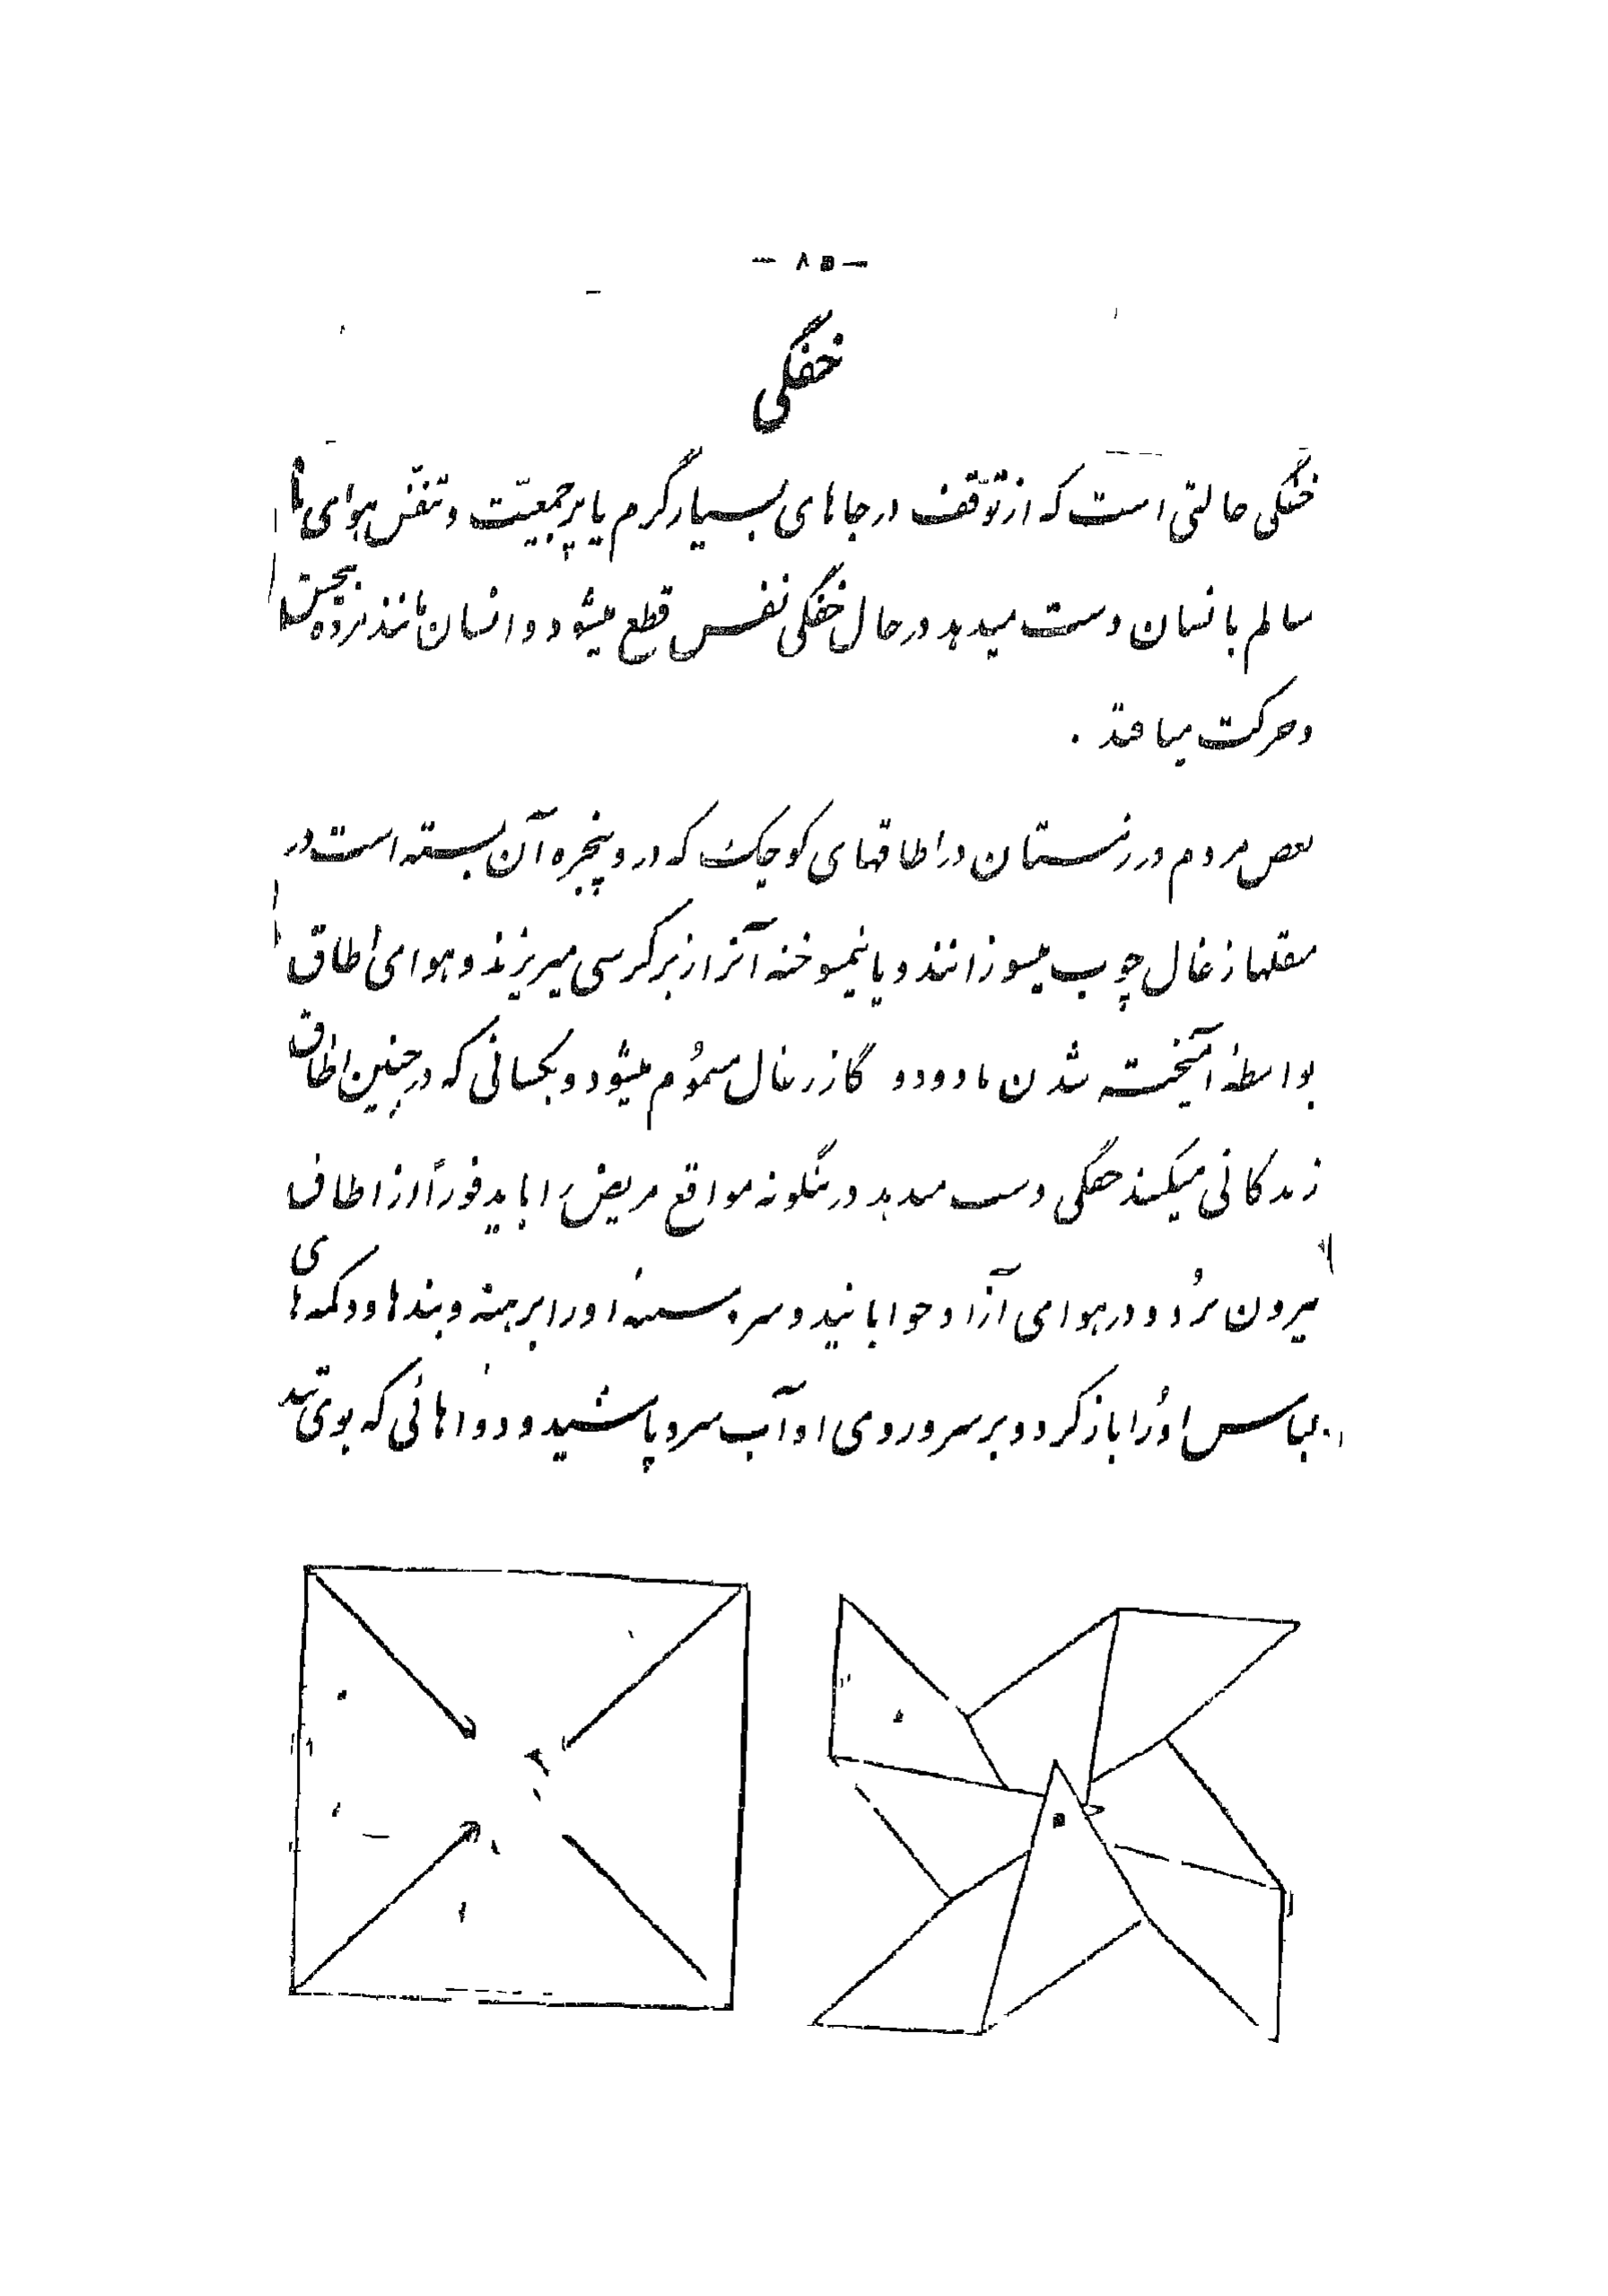 - ۸۵ -
خفگی
خفگی حالتی است که از توّقف در جاهای بسیار گرم یا پرجمعیّت و تنفّس هوای نا
سالم بانسان دست میدهد در حال خفگی نفس قطع میشود و انسان مانند مرده بیحس
و حرکت میافتد .
بعض مردم در زمستان در اطاقهای کوچک که در و پنجره آن بسته است در
منقلها زغال چوب میسوزانند و یا نیمسوخته آنرا زیر کرسی میریزند و هوای اطاق
بواسطهٔ آمیخته شدن با دود و گاز زغال مسمُوم میشود و بکسانی که در چنین اطاق
زندگانی میکنند خفگی دست میدهد در اینگونه مواقع مریض را باید فوراً از اطاق
بیرون بُرد و در هوای آزاد خوابانید و سر و سینهٔ او را برهنه و بندها و دکمه های
لباس اوُ را باز کرد و بر سر و روی او آب سرد پاشید و دواهائی که بوی تند